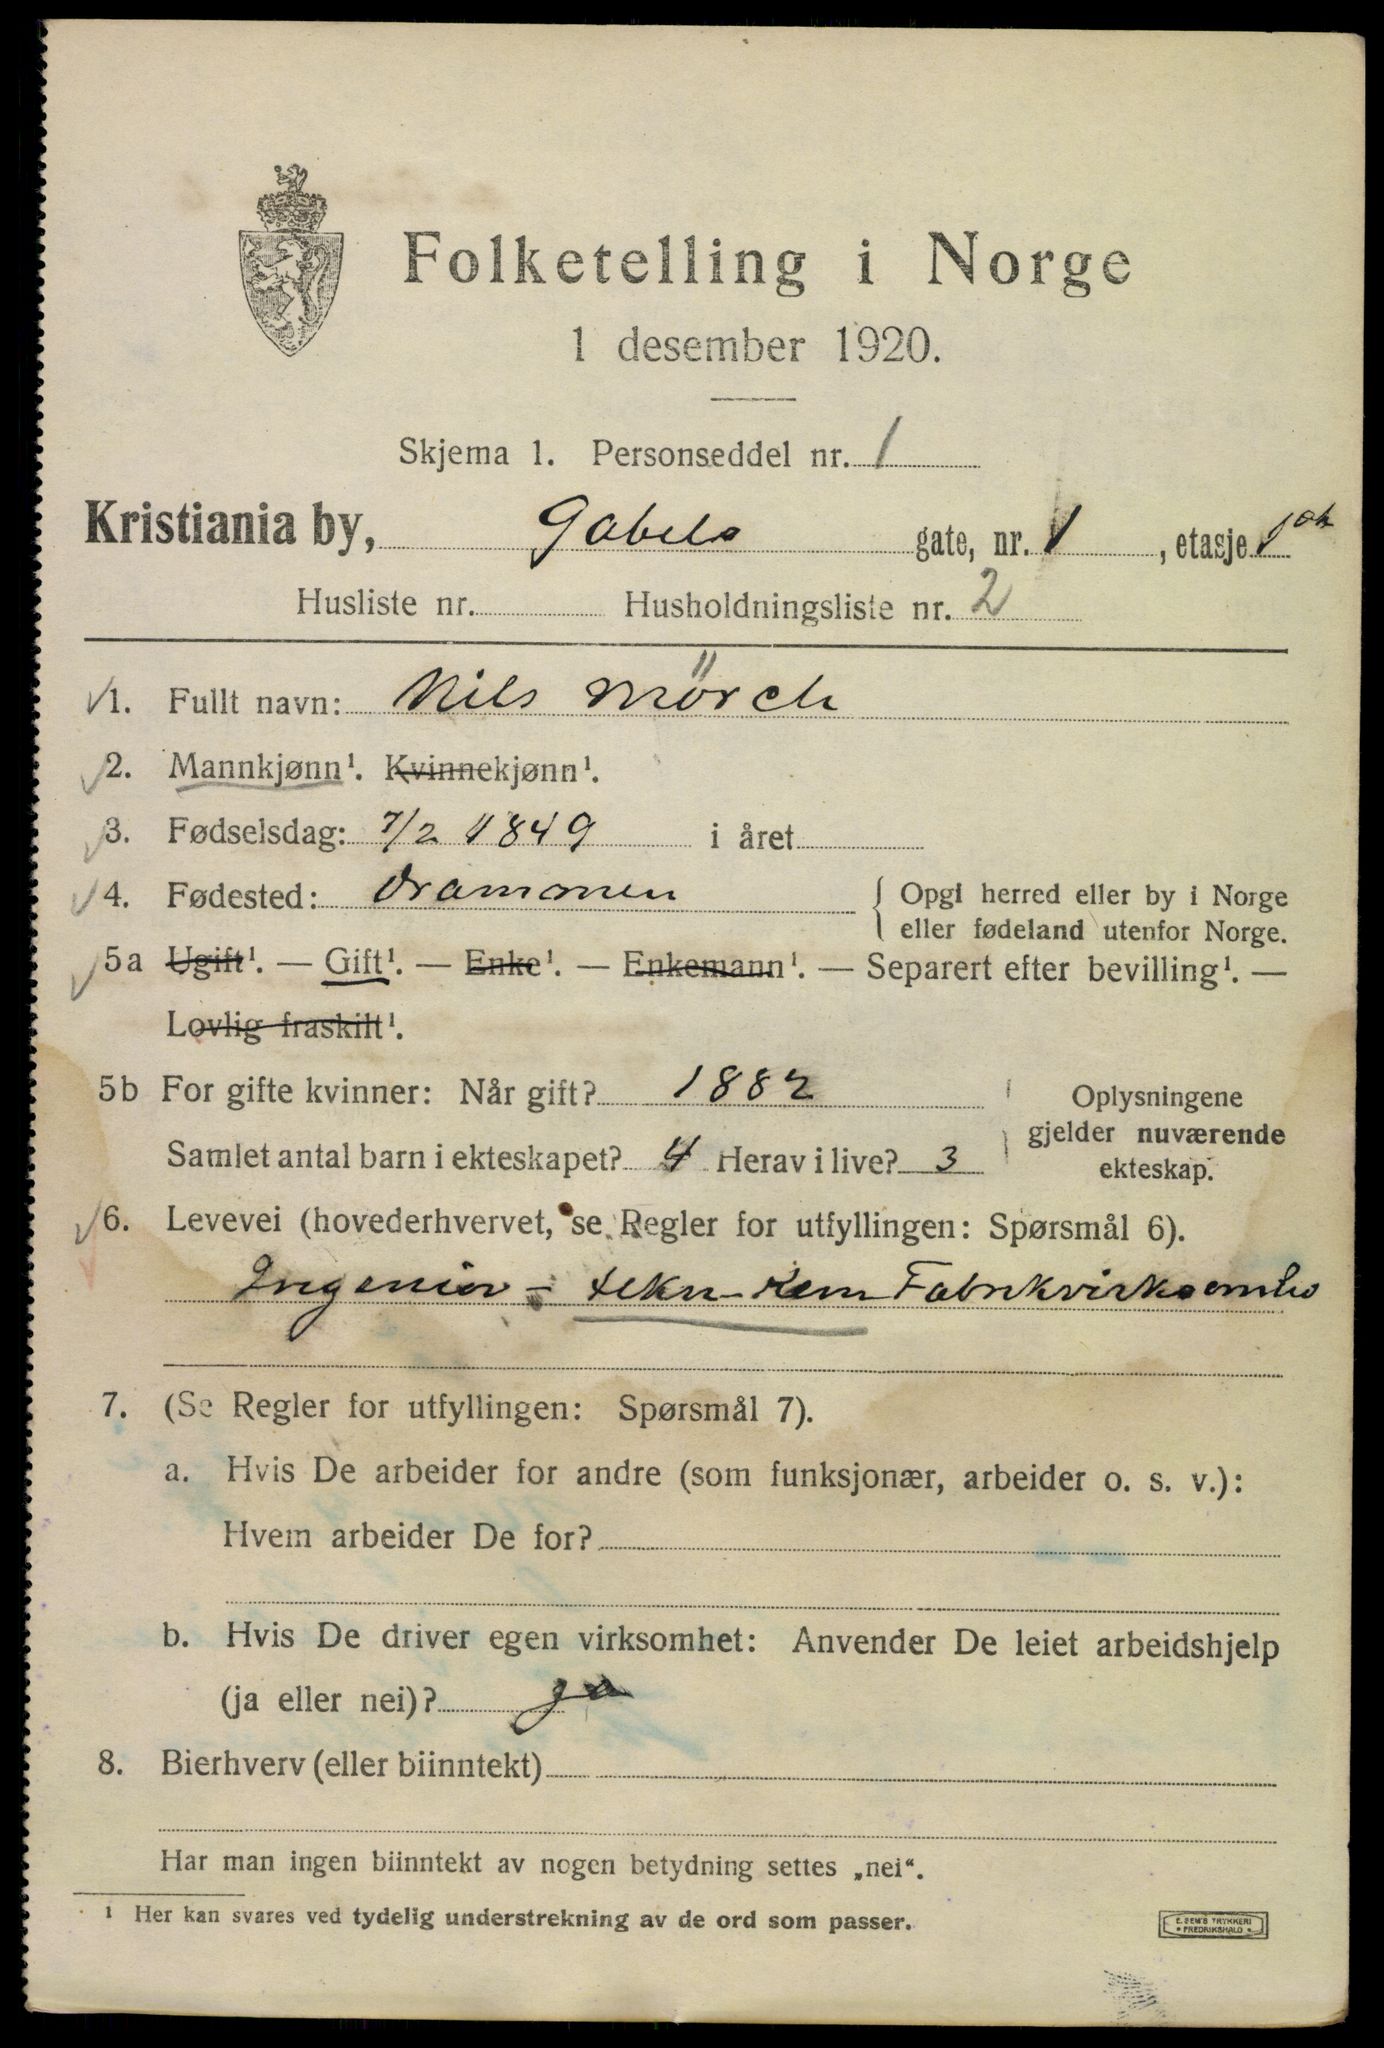 Folketelling i Norge
1 desember 1920.
Skjema 1. Personseddel nr. 1
Kristiania by, Gabels gate, nr. 1, etasje 1
Husliste nr. Husholdningsliste nr. 2
1. Fullt navn: Nils Mörch
2. Mannkjønn¹. Kvinnekjønn¹.
3. Fødselsdag: 7/2 1849 i året
4. Fødested: Drammen { Opgi herred eller by i Norge
eller fødeland utenfor Norge.
5a Ugift¹. — Gift¹. — Enke¹. — Enkemann¹. — Separert efter bevilling¹. —
Lovlig fraskilt¹.
5b For gifte kvinner: Når gift? 1882
Samlet antal barn i ekteskapet? 4 Herav i live? 3
Oplysningene
gjelder nuværende
ekteskap.
6. Levevei (hovederhvervet, se Regler for utfyllingen: Spørsmål 6).
Ingeniør - tekn-kem Fabrikvirksomhe
7. (Se Regler for utfyllingen: Spørsmål 7).
a. Hvis De arbeider for andre (som funksjonær, arbeider o. s. v.):
Hvem arbeider De for?
b. Hvis De driver egen virksomhet: Anvender De leiet arbeidshjelp
(ja eller nei)? ja
8. Bierhverv (eller biinntekt)
Har man ingen biinntekt av nogen betydning settes „nei“.
¹ Her kan svares ved tydelig understrekning av de ord som passer.
E. SEM'S TRYKKERI
• FREDRIKSHALD •